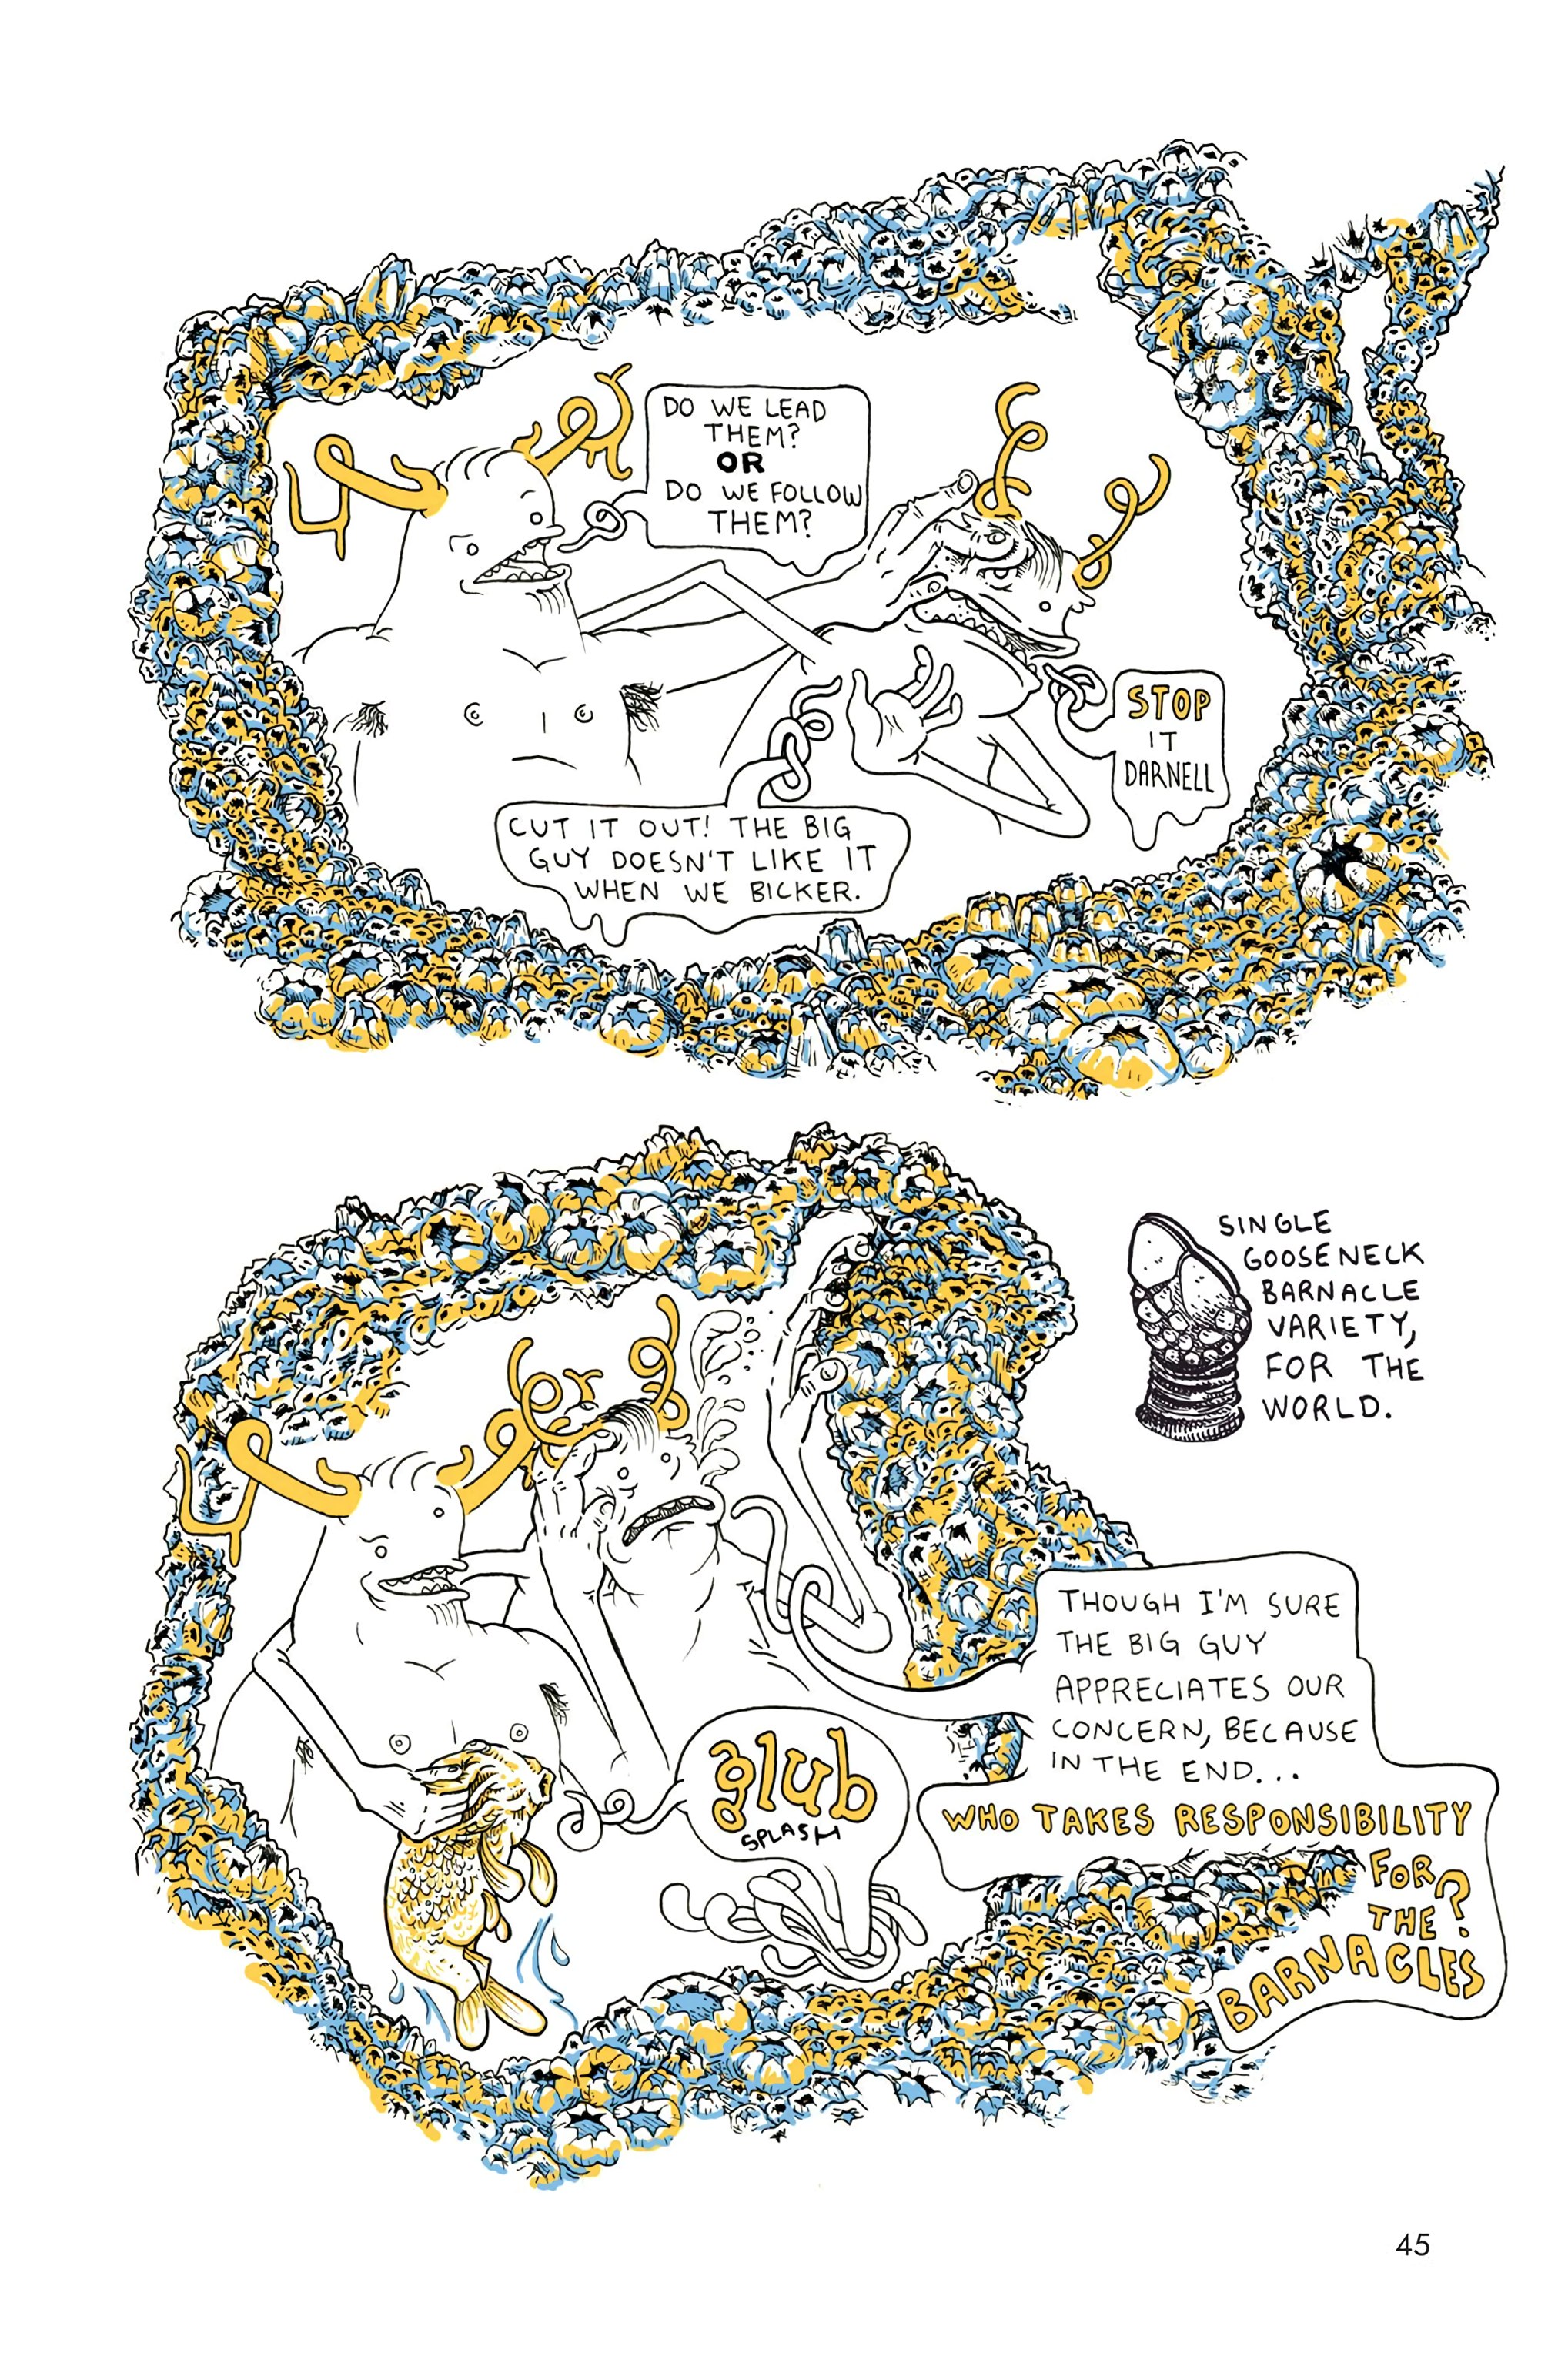 DO WE LEAD
THEM?
OR
DO WE FOLLOW
THEM?
STOP
IT
DARNELL
CUT IT OUT! THE BIG
GUY DOESN'T LIKE IT
WHEN WE BICKER.
SINGLE
GOOSENECK
BARNACLE
VARIETY,
FOR THE
WORLD.
THOUGH I'M SURE
THE BIG GUY
APPRECIATES OUR
CONCERN, BECAUSE
IN THE END...
WHO TAKES RESPONSIBILITY
FOR
THE?
BARNACLES
glub
SPLASH
45